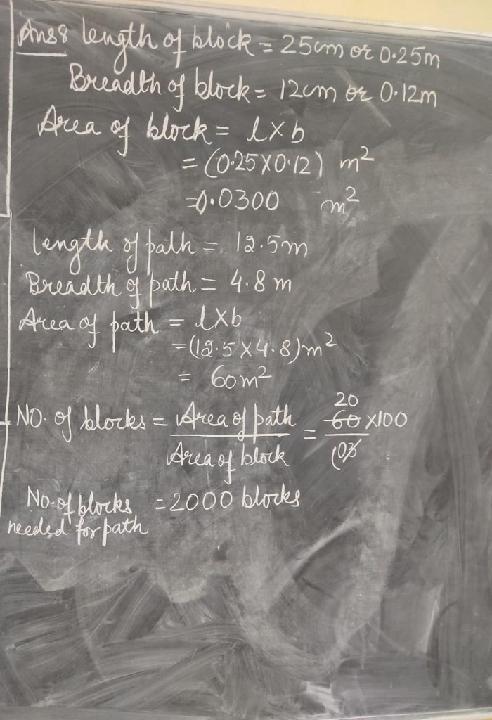 Ans 8 length of block = 25cm or 0.25m
Breadth of block = 12cm or 0.12m
Area of block = l x b
= (0.25 x 0.12) m²
= 0.0300 m²
length of path = 12.5m
Breadth of path = 4.8 m
Area of path = l x b
= (12.5 x 4.8) m²
= 60m²
20
NO. of blocks = Area of path / Area of block = 60 x 100 / 03
No. of blocks = 2000 blocks
needed for path